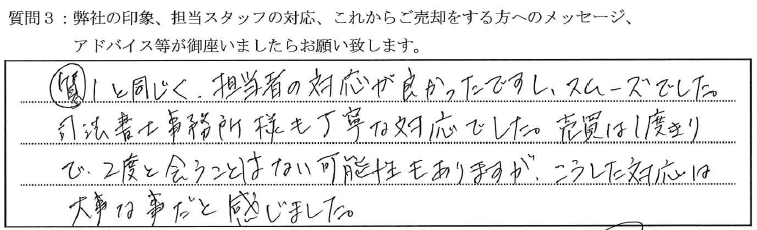 質問3：弊社の印象、担当スタッフの対応、これからご売却をする方へのメッセージ、
アドバイス等が御座いましたらお願い致します。
質1と同じく、担当者の対応が良かったですし、スムーズでした。
司法書士事務所様も丁寧な対応でした。売買は1度きり
で、2度と会うことはない可能性もありますが、こうした対応は
大事な事だと感じました。